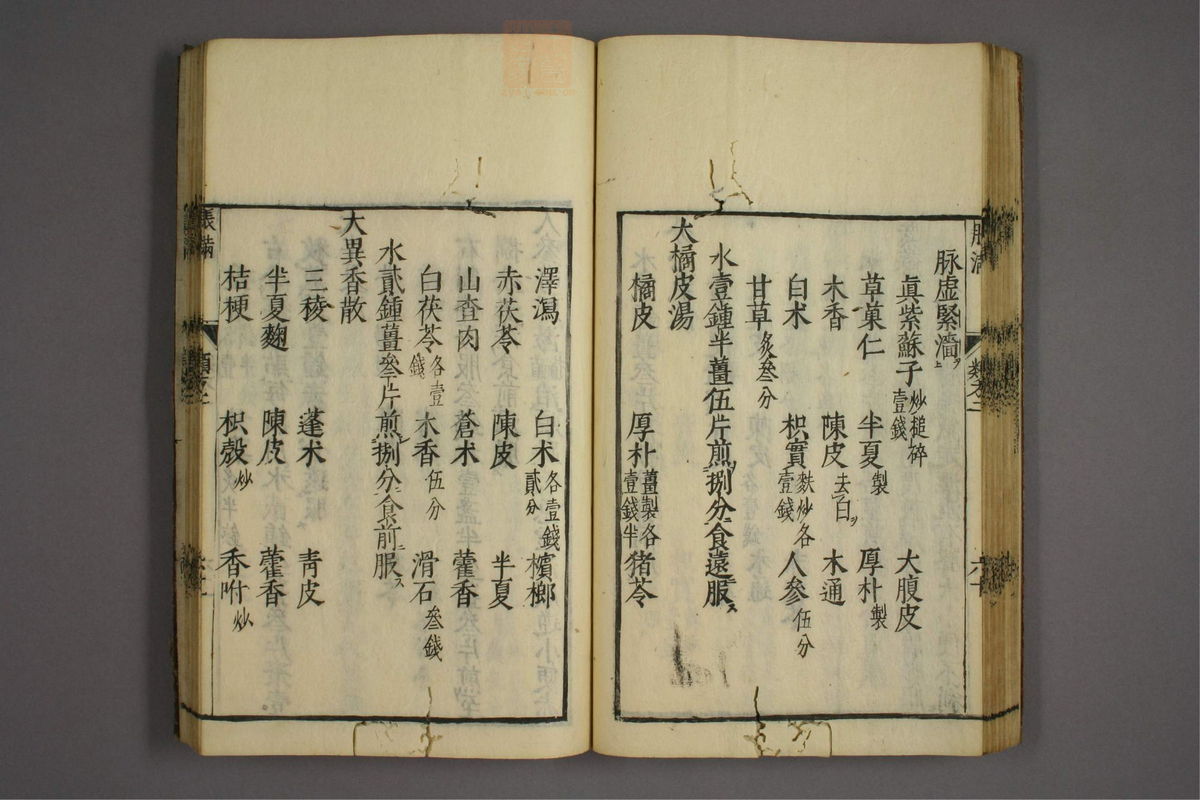 脉虛緊濇ヲ上
眞紫蘇子炒槌碎壹錢 大腹皮
草菓仁 半夏製 厚朴製
木香 陳皮去白ヲ 木通
白术 枳實麩炒各壹錢 人參伍分
甘草炙叄分
水壹鍾半薑伍片煎捌分食遠服ス
大橘皮湯
橘皮 厚朴薑製各壹錢半 猪苓
澤瀉 白术各壹錢貳分 檳榔
赤茯苓 陳皮 半夏
山查肉 蒼术 藿香
白茯苓各壹錢 木香伍分 滑石叄錢
水貳鍾薑叄片煎捌分食前ニ服ス
大異香散
三稜 蓬术 靑皮
半夏麯 陳皮 藿香
桔梗 枳殼炒 香附炒
脹滿
類